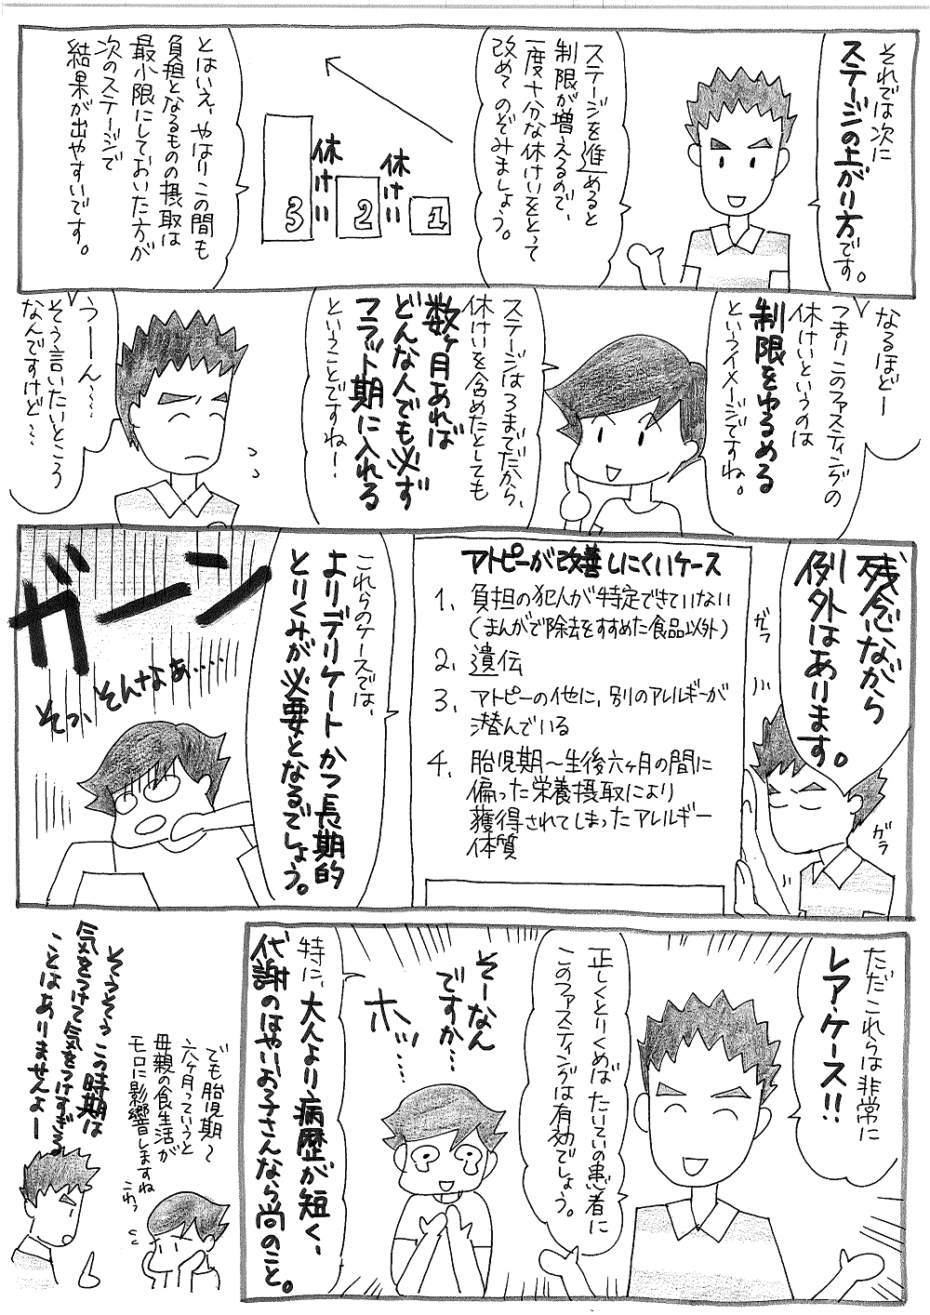 それでは次に
ステージの上がり方です。
ステージを進めると
制限が増えるので、
一度十分な休けいをとって
改めてのぞみましょう。
1
休けい
2
休けい
3
とはいえ、やはりこの間も
負担となるものの摂取は
最小限にしておいた方が
次のステージで
結果が出やすいです。
なるほどー
つまりこのファスティングの
休けいというのは
制限をゆるめる
というイメージですね。
ステージは3までだから、
休けいを含めたとしても
数ヶ月あれば
どんな人でも必ず
フラット期に入れる
ということですね！
うーーん……
そう言いたいところ
なんですけど…
残念ながら
例外はあります。
ガラ
ガラ
アトピーが改善しにくいケース
1、負担の犯人が特定できていない
（まんがで除去をすすめた食品以外）
2、遺伝
3、アトピーの他に、別のアレルギーが
潜んでいる
4、胎児期〜生後六ヶ月の間に
偏った栄養摂取により
獲得されてしまったアレルギー
体質
これらのケースでは、
よりデリケートかつ長期的
とりくみが必要となるでしょう。
ガーン
そっ、そんなぁ……
ただこれらは非常に
レア・ケース!!
正しくとりくめばたいていの患者に
このファスティングは有効でしょう。
そーなん
ですか…
ホッ…
特に、大人より病歴が短く、
代謝のはやいお子さんなら尚のこと。
でも胎児期〜
六ヶ月っていうと
母親の食生活が
モロに影響しますね
こわっ
そうそう この時期は
気をつけて気をつけすぎる
ことはありませんよー